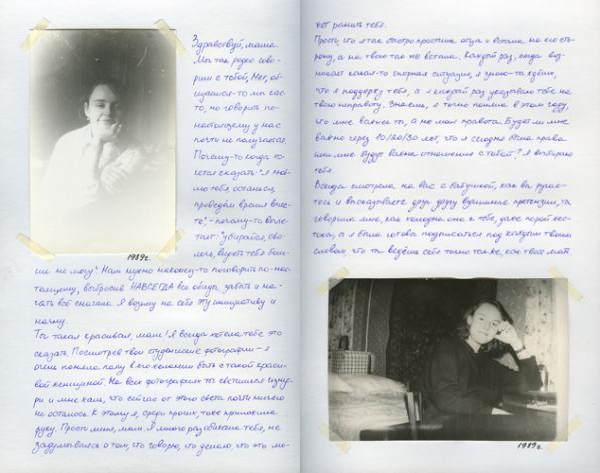 Здравствуй, мама.
Мы так редко гово-
рим с тобой, Нет, об-
щаемся-то мы час-
то, но говорить по-
настоящему у нас
почти не получается.
Почему-то когда хо-
чется сказать: "я люб-
лю тебя, останься,
проведём время вмес-
те", - почему-то выле-
тает: "убирайся, сво-
лочь, видеть тебя боль-
1989г.
ше не могу". Нам нужно наконец-то поговорить по-нас-
тоящему, выбросив НАВСЕГДА все обиды, забыть и на-
чать всё сначала. Я возьму на себя эту инициативу и
начну.
Ты такая красивая, мам! Я всегда хотела тебе это
сказать. Посмотрев твои студенческие фотографии - я
очень поняла папу в его желании быть с такой краси-
вой женщиной. На всех фотографиях ты светишься изну-
ри и мне жаль, что сейчас от этого света почти ничего
не осталось. К этому я, среди прочих, тоже приложила
руку. Прости меня, мам. Я много раз обижала тебя, не
задумываясь о том, что говорю, что делаю, что это мо-
жет ранить тебя.
Прости, что я так быстро простила отца и встала на его сто-
рону, а на твою так не встала. Каждый раз, когда воз-
никает какая-то спорная ситуация, я знаю-ты ждёшь,
что я поддержу тебя, а я каждый раз указываю тебе на
твою неправоту. Знаешь, я точно поняла в этом году,
что мне важнее ты, а не моя правота. Будет ли мне
важно через 10/20/30 лет, что я сегодня была права
или мне будут важны отношения с тобой? Я выбираю
тебя.
Всегда смотрела на вас с бабушкой, как вы ругае-
тесь и высказываете друг другу взаимные претензии, ты
говоришь мне, как холодна она к тебе, даже порой жес-
тока, а я была готова подписаться под каждым твоим
словом, что ты ведёшь себя точно также, как твоя мать.
1989г.